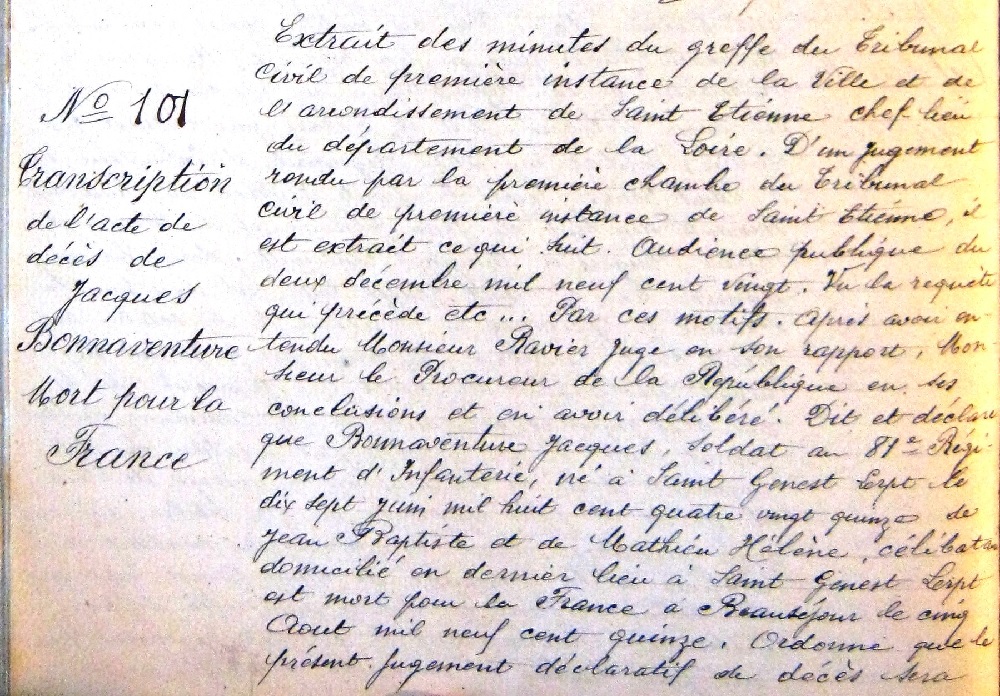 No 101
Transcription
de l'acte de
décès de
Jacques
Bonnaventure
Mort pour la
France
Extrait des minutes du greffe du Tribunal
civil de première instance de la Ville et de
l'arrondissement de Saint Etienne chef-lieu
du département de la Loire. D'un jugement
rendu par la première chambre du Tribunal
civil de première instance de Saint Etienne, il
est extrait ce qui suit. Audience publique du
deux décembre mil neuf cent vingt. Vu la requête
qui précède etc... Par ces motifs. Après avoir en-
tendu Monsieur Ravier Juge en son rapport, Mon-
sieur le Procureur de la République en ses
conclusions et en avoir délibéré. Dit et déclare
que Bonnaventure Jacques, soldat au 81e Régi-
ment d'Infanterie, né à Saint Genest Lerpt le
dix sept juin mil huit cent quatre vingt quinze de
Jean Baptiste et de Mathieu Hélène, célibat
domicilié en dernier lieu à Saint Genest Lerpt
est mort pour la France à Beauséjour le cinq
Aout mil neuf cent quinze. Ordonne que le
présent jugement déclaratif de décès sera